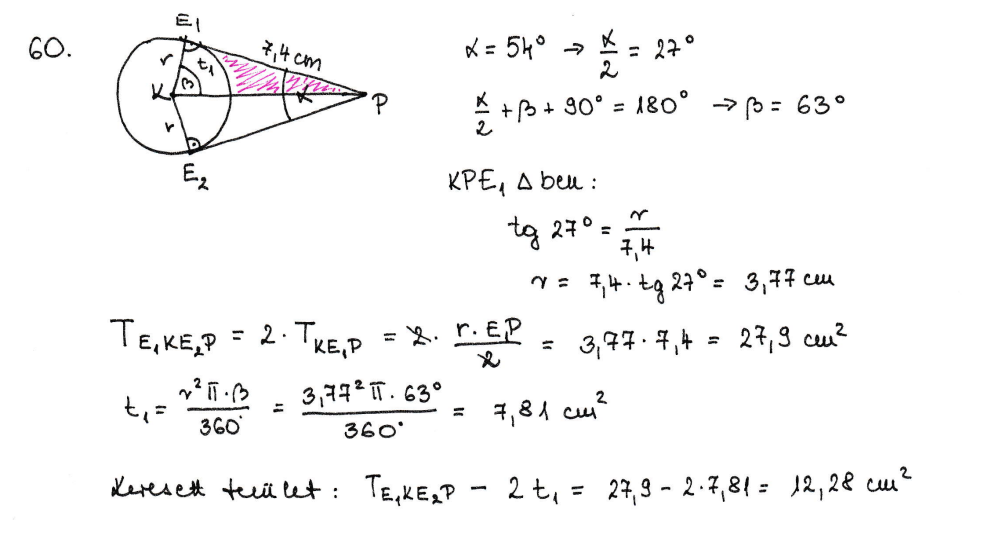 60.
E₁
7,4 cm
r t₁
K β α P
r
E₂
α = 54° → α/2 = 27°
α/2 + β + 90° = 180° → β = 63°
KPE₁ Δ ben :
tg 27° = r/7,4
r = 7,4 · tg 27° = 3,77 cm
T_E₁KE₂P = 2 · T_KE₁P = 2 · r · E₁P/2 = 3,77 · 7,4 = 27,9 cm²
t₁ = r²π · β/360° = 3,77²π · 63°/360° = 7,81 cm²
Keresett terület : T_E₁KE₂P − 2 t₁ = 27,9 − 2 · 7,81 = 12,28 cm²